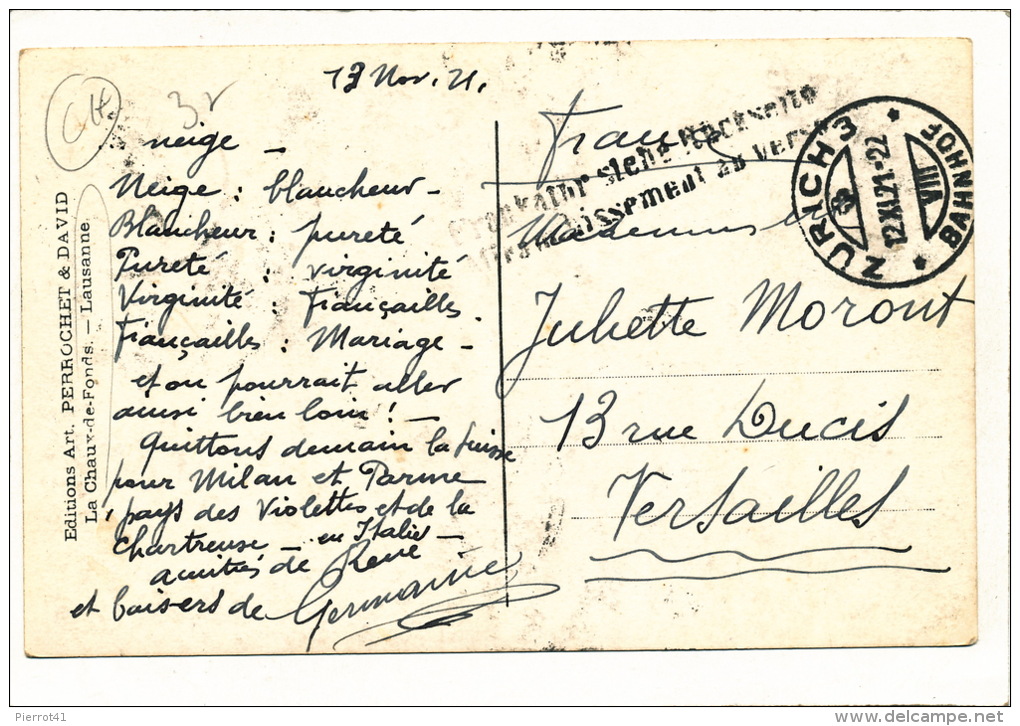 13 Nov. 21.
neige –
Neige : blancheur –
Blancheur : pureté
Pureté : virginité
Virginité : Fiançailles.
Fiançailles : Mariage –
et on pourrait aller
ainsi bien loin ! –
Quittons demain la Suisse
pour Milan et Parme
pays des Violettes et de la
Chartreuse – en Italie –
amitiés de René
et baisers de Germaine
Editions Art. PERROCHET & DAVID
La Chaux-de-Fonds. — Lausanne.
France
siehe Rückseite
Affranchissement au verso
ZÜRICH 3
BAHNHOF
12.XI.21.-22
VIII
Mademoiselle
Juliette Moront
13 rue Ducis
Versailles
Pierrot41
delcampe.net